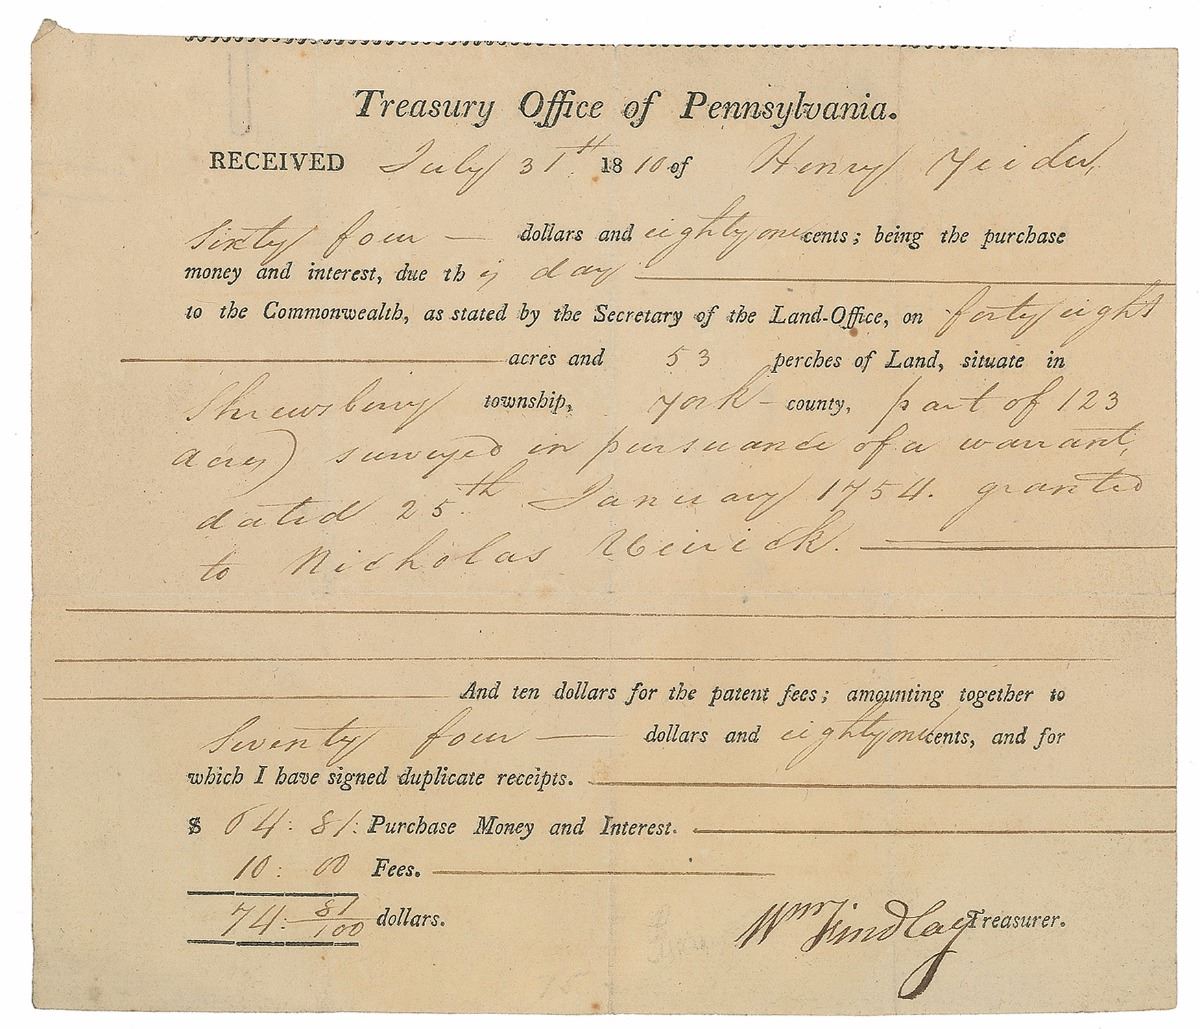 Treasury Office of Pennsylvania.
RECEIVED July 31th 1810 of Henry
Sixty four — dollars and eighty one cents; being the purchase
money and interest, due this day
to the Commonwealth, as stated by the Secretary of the Land-Office, on forty eight
acres and 53 perches of Land, situate in
Shrewsbury township, York county, part of 123
acres) surveyed in pursuance of a warrant,
dated 25th January 1754. granted
to Nicholas
And ten dollars for the patent fees; amounting together to
Seventy four — dollars and eighty one cents, and for
which I have signed duplicate receipts.
$ 64: 81: Purchase Money and Interest.
10: 00 Fees.
74: 81/100 dollars. Wm Findlay Treasurer.